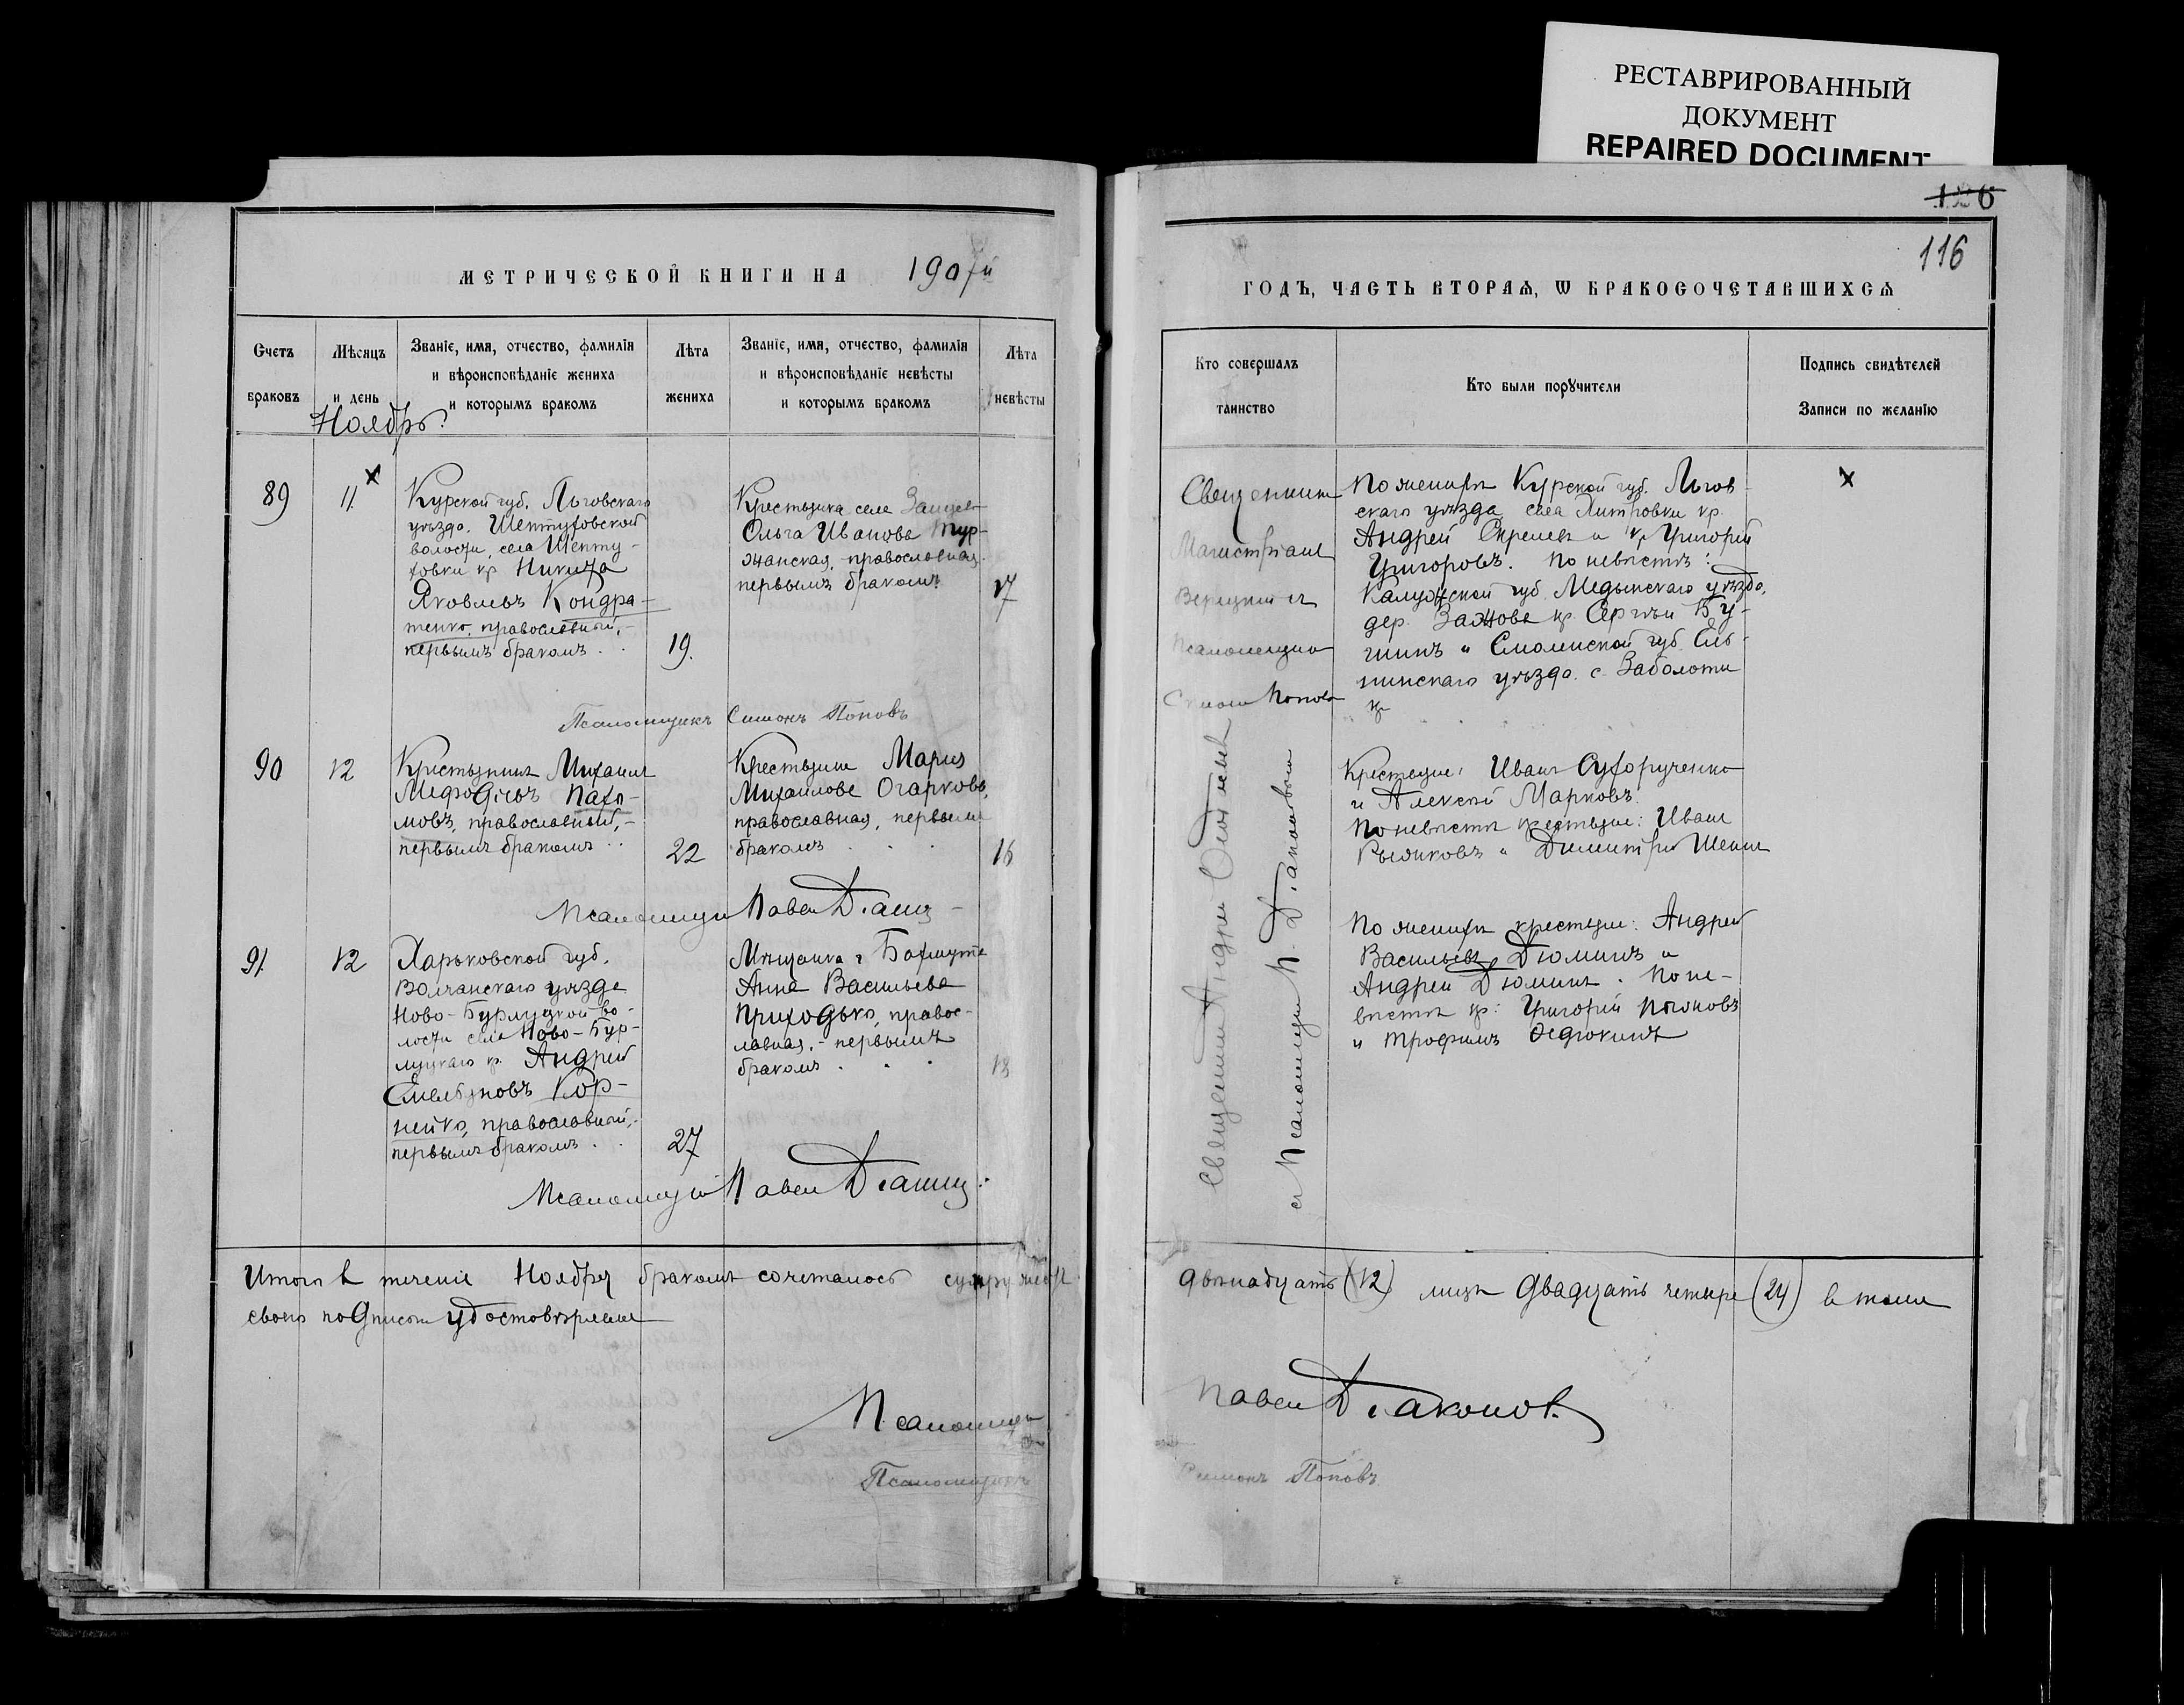 РЕСТАВРИРОВАННЫЙ
ДОКУМЕНТ
REPAIRED DOCUMENT
116
МЕТРИЧЕСКОЙ КНИГИ НА 1907й
Счетъ
браковъ
Мѣсяцъ
и день
Званіе, имя, отчество, фамилія
и вѣроисповѣданіе жениха
и которымъ бракомъ
Лѣта
жениха
Званіе, имя, отчество, фамилія
и вѣроисповѣданіе невѣсты
и которымъ бракомъ
Лѣта
невѣсты
Ноябрь
89
11
Курской губ. Льговскаго
уѣзда. Шептуховской
волости, села Шепту-
ховки кр. Никита
Яковлевъ Кондра-
тенко, православный,-
первымъ бракомъ . .
19.
Крестьянка села
Ольга Иванова Тур-
жанская, православная.
первымъ бракомъ
17
Псаломщикъ Симонъ Поповъ
90
12
Крестьянинъ Михаилъ
Мефодіевъ Пахо-
мовъ, православный,-
первымъ бракомъ . .
22
Крестьянка Марія
Михаилова Огаркова,
православная, первымъ
бракомъ . . .
16
Псаломщикъ Павелъ
91.
12
Харьковской губ.
Волчанскаго уѣзда
Ново-Бурлуцкой во-
лости села Ново-Бур-
луцкаго кр. Андрей
Емельяновъ Кор-
нейко, православный,-
первымъ бракомъ . .
27
Мѣщанка г. Бахмута
Анна Васильева
Приходько, правос-
лавная,- первымъ
бракомъ . . .
18
Псаломщикъ Павелъ
Итого въ теченіе Ноября бракомъ сочеталось
своею подписью удостовѣряемъ
Псаломщикъ
Псаломщикъ
ГОДЪ, ЧАСТЬ ВТОРАѦ, Ѡ БРАКОСОЧЕТАВШИХСѦ
Кто совершалъ
таинство
Кто были порꙋчители
Подпись свидѣтелей
Записи по желанію
Священникъ
Псаломщикомъ
Симономъ Поповымъ
По женихѣ Курской губ. Льгов-
скаго уѣзда села кр.
Андрей и кр. Григорій
Григоровъ. По невѣстѣ:
Калужской губ. Медынскаго уѣзда,
дер. кр. Сергѣй Бу-
и Смоленской губ. Ель-
нинскаго уѣзда. с. Заболотья
кр.
Священникъ Андрей
съ Псаломщикомъ П. Діаконовымъ
Крестьяне: Иванъ Сухорученко
и Алексѣй Марковъ.
По невѣстѣ крестьяне: Иванъ
и Димитрій
По женихѣ крестьяне: Андрей
Васильевъ Дюминъ и
Андрей Дюминъ. По не-
вѣстѣ кр: Григорій
и Трофимъ Федюкинъ
двѣнадцать (12) лицъ двадцать четыре (24) въ томъ
Павелъ Діаконовъ.
Симонъ Поповъ